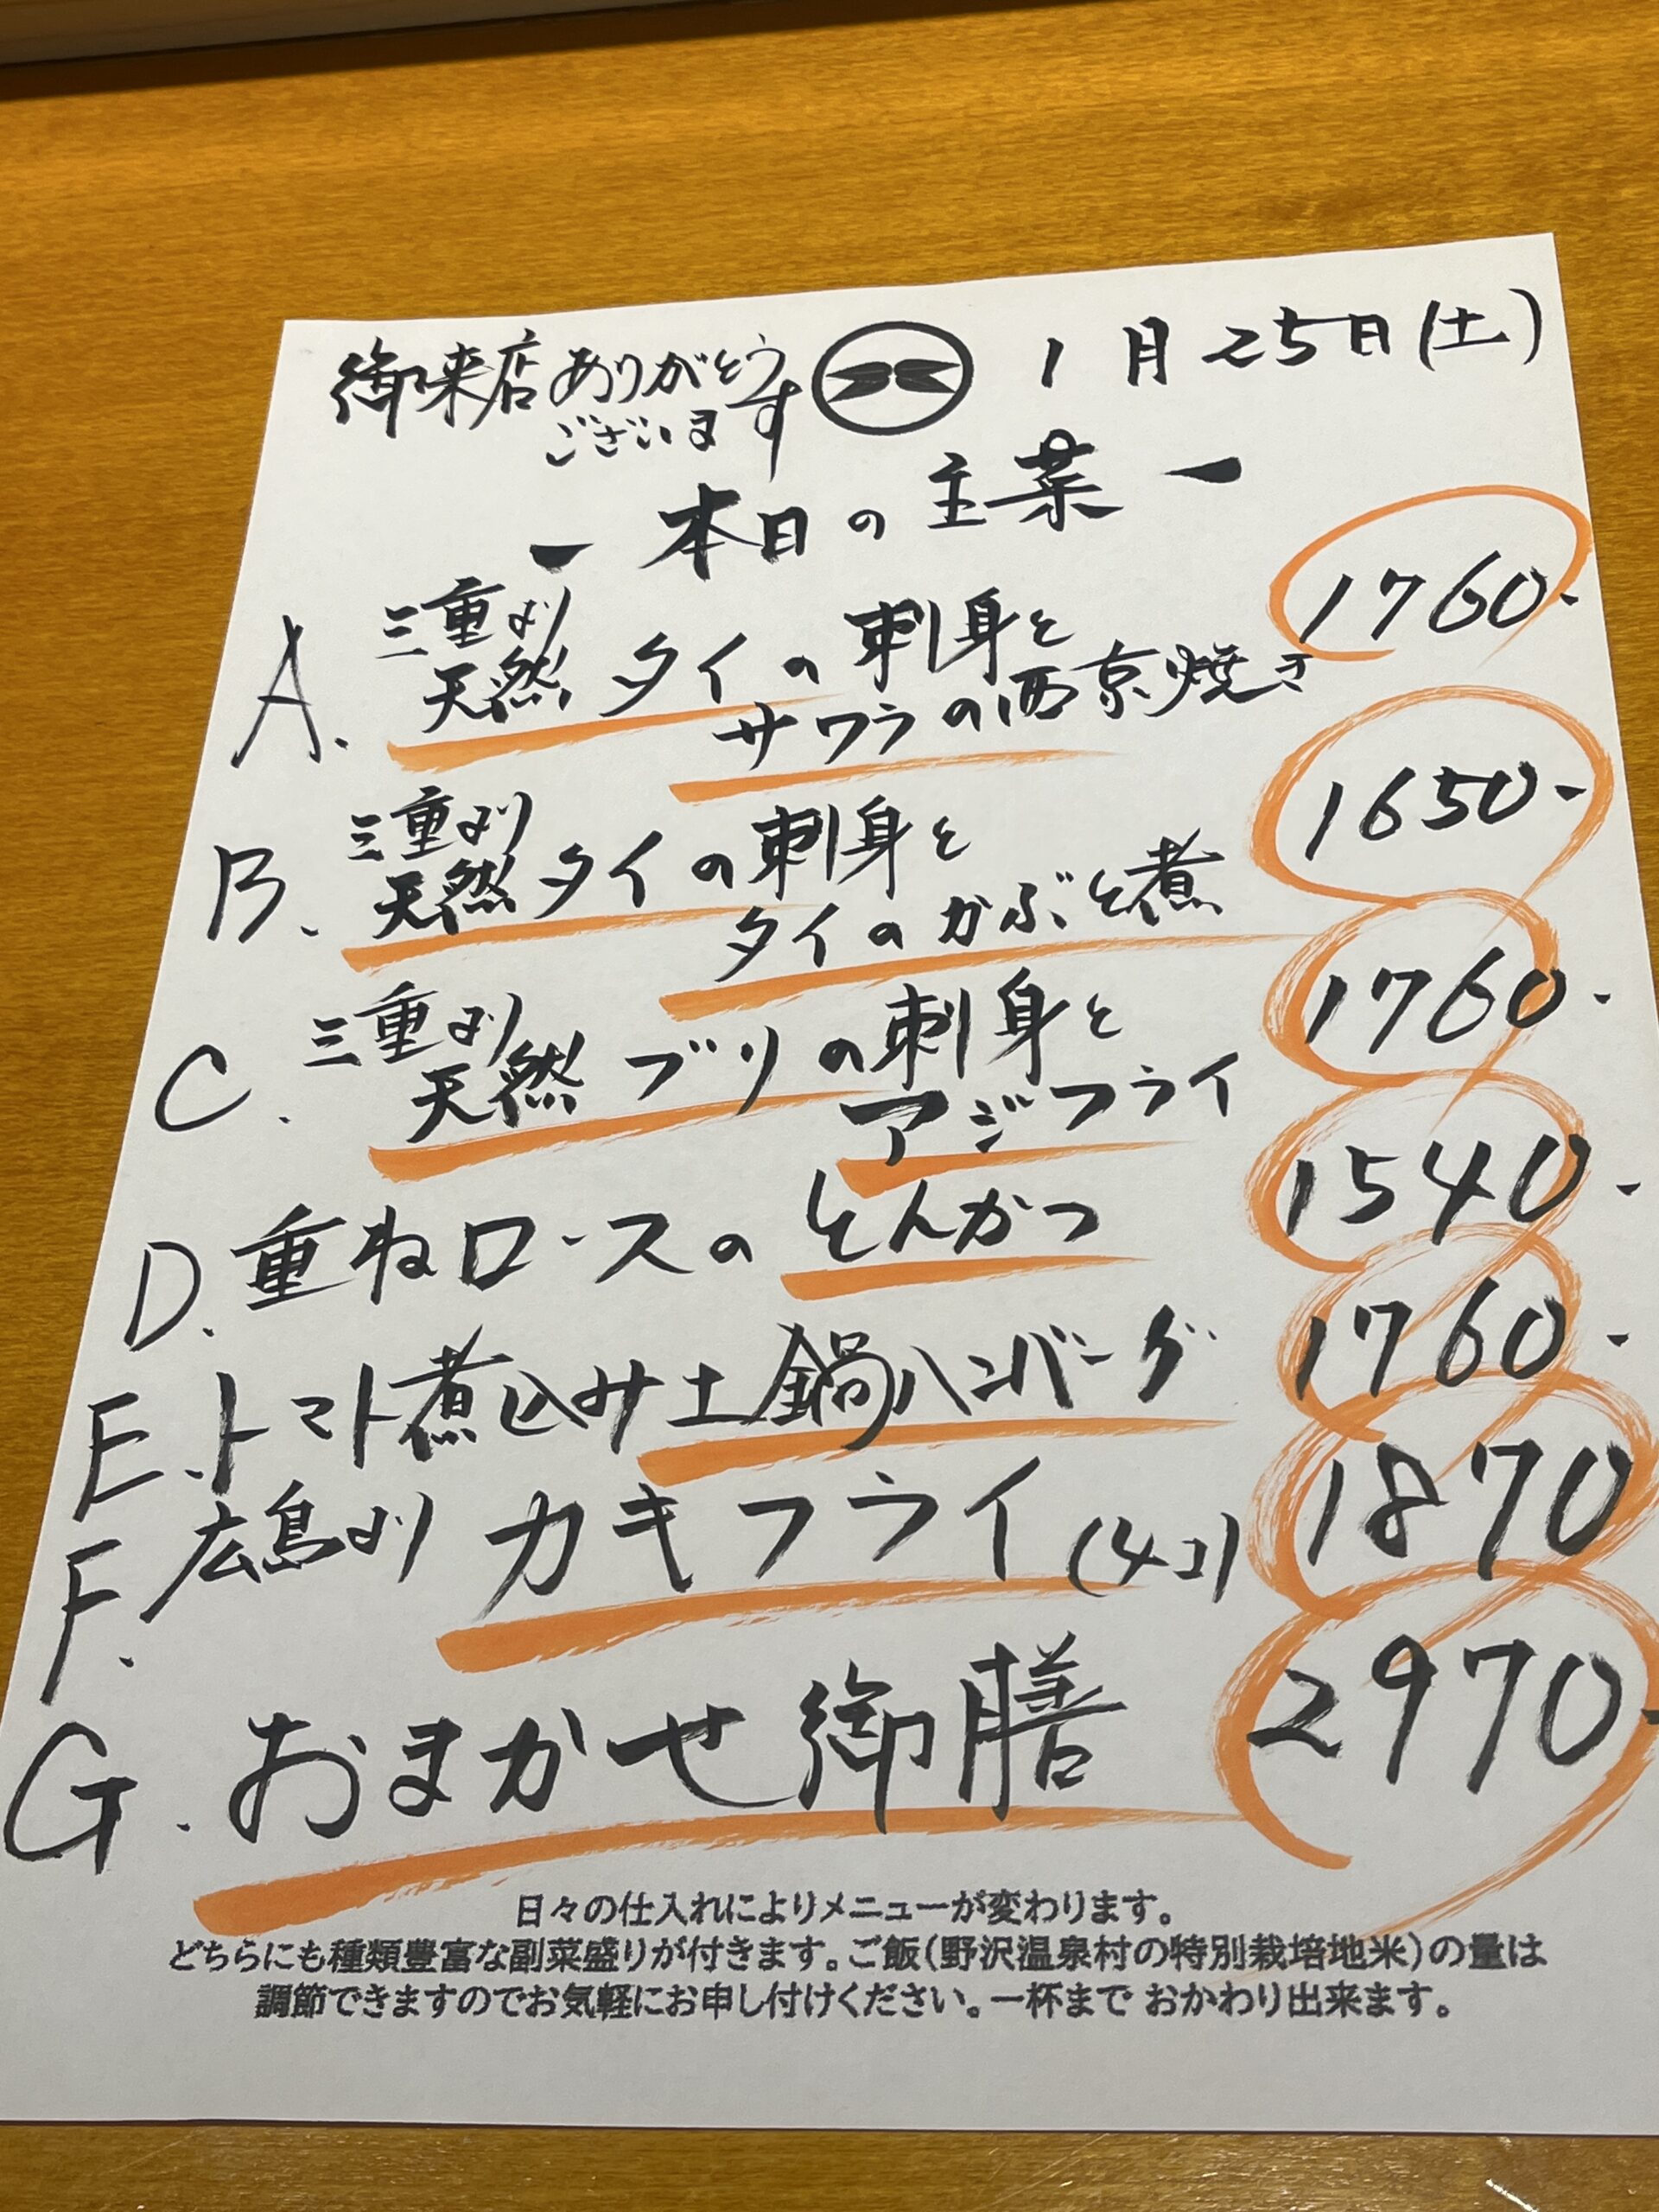 御来店ありがとう
ございます
1月25日(土)
ー本日の主菜ー
A. 三重より
天然タイの刺身と
サワラの西京焼き
1760-
B. 三重より
天然タイの刺身と
タイのかぶと煮
1650-
C. 三重より
天然ブリの刺身と
アジフライ
1760-
D. 重ねロースのとんかつ
1540-
E. トマト煮込み土鍋ハンバーグ
1760-
F. 広島より カキフライ(4コ)
1870
G. おまかせ御膳
2970-
日々の仕入れによりメニューが変わります。
どちらにも種類豊富な副菜盛りが付きます。ご飯(野沢温泉村の特別栽培地米)の量は
調節できますのでお気軽にお申し付けください。一杯まで おかわり出来ます。